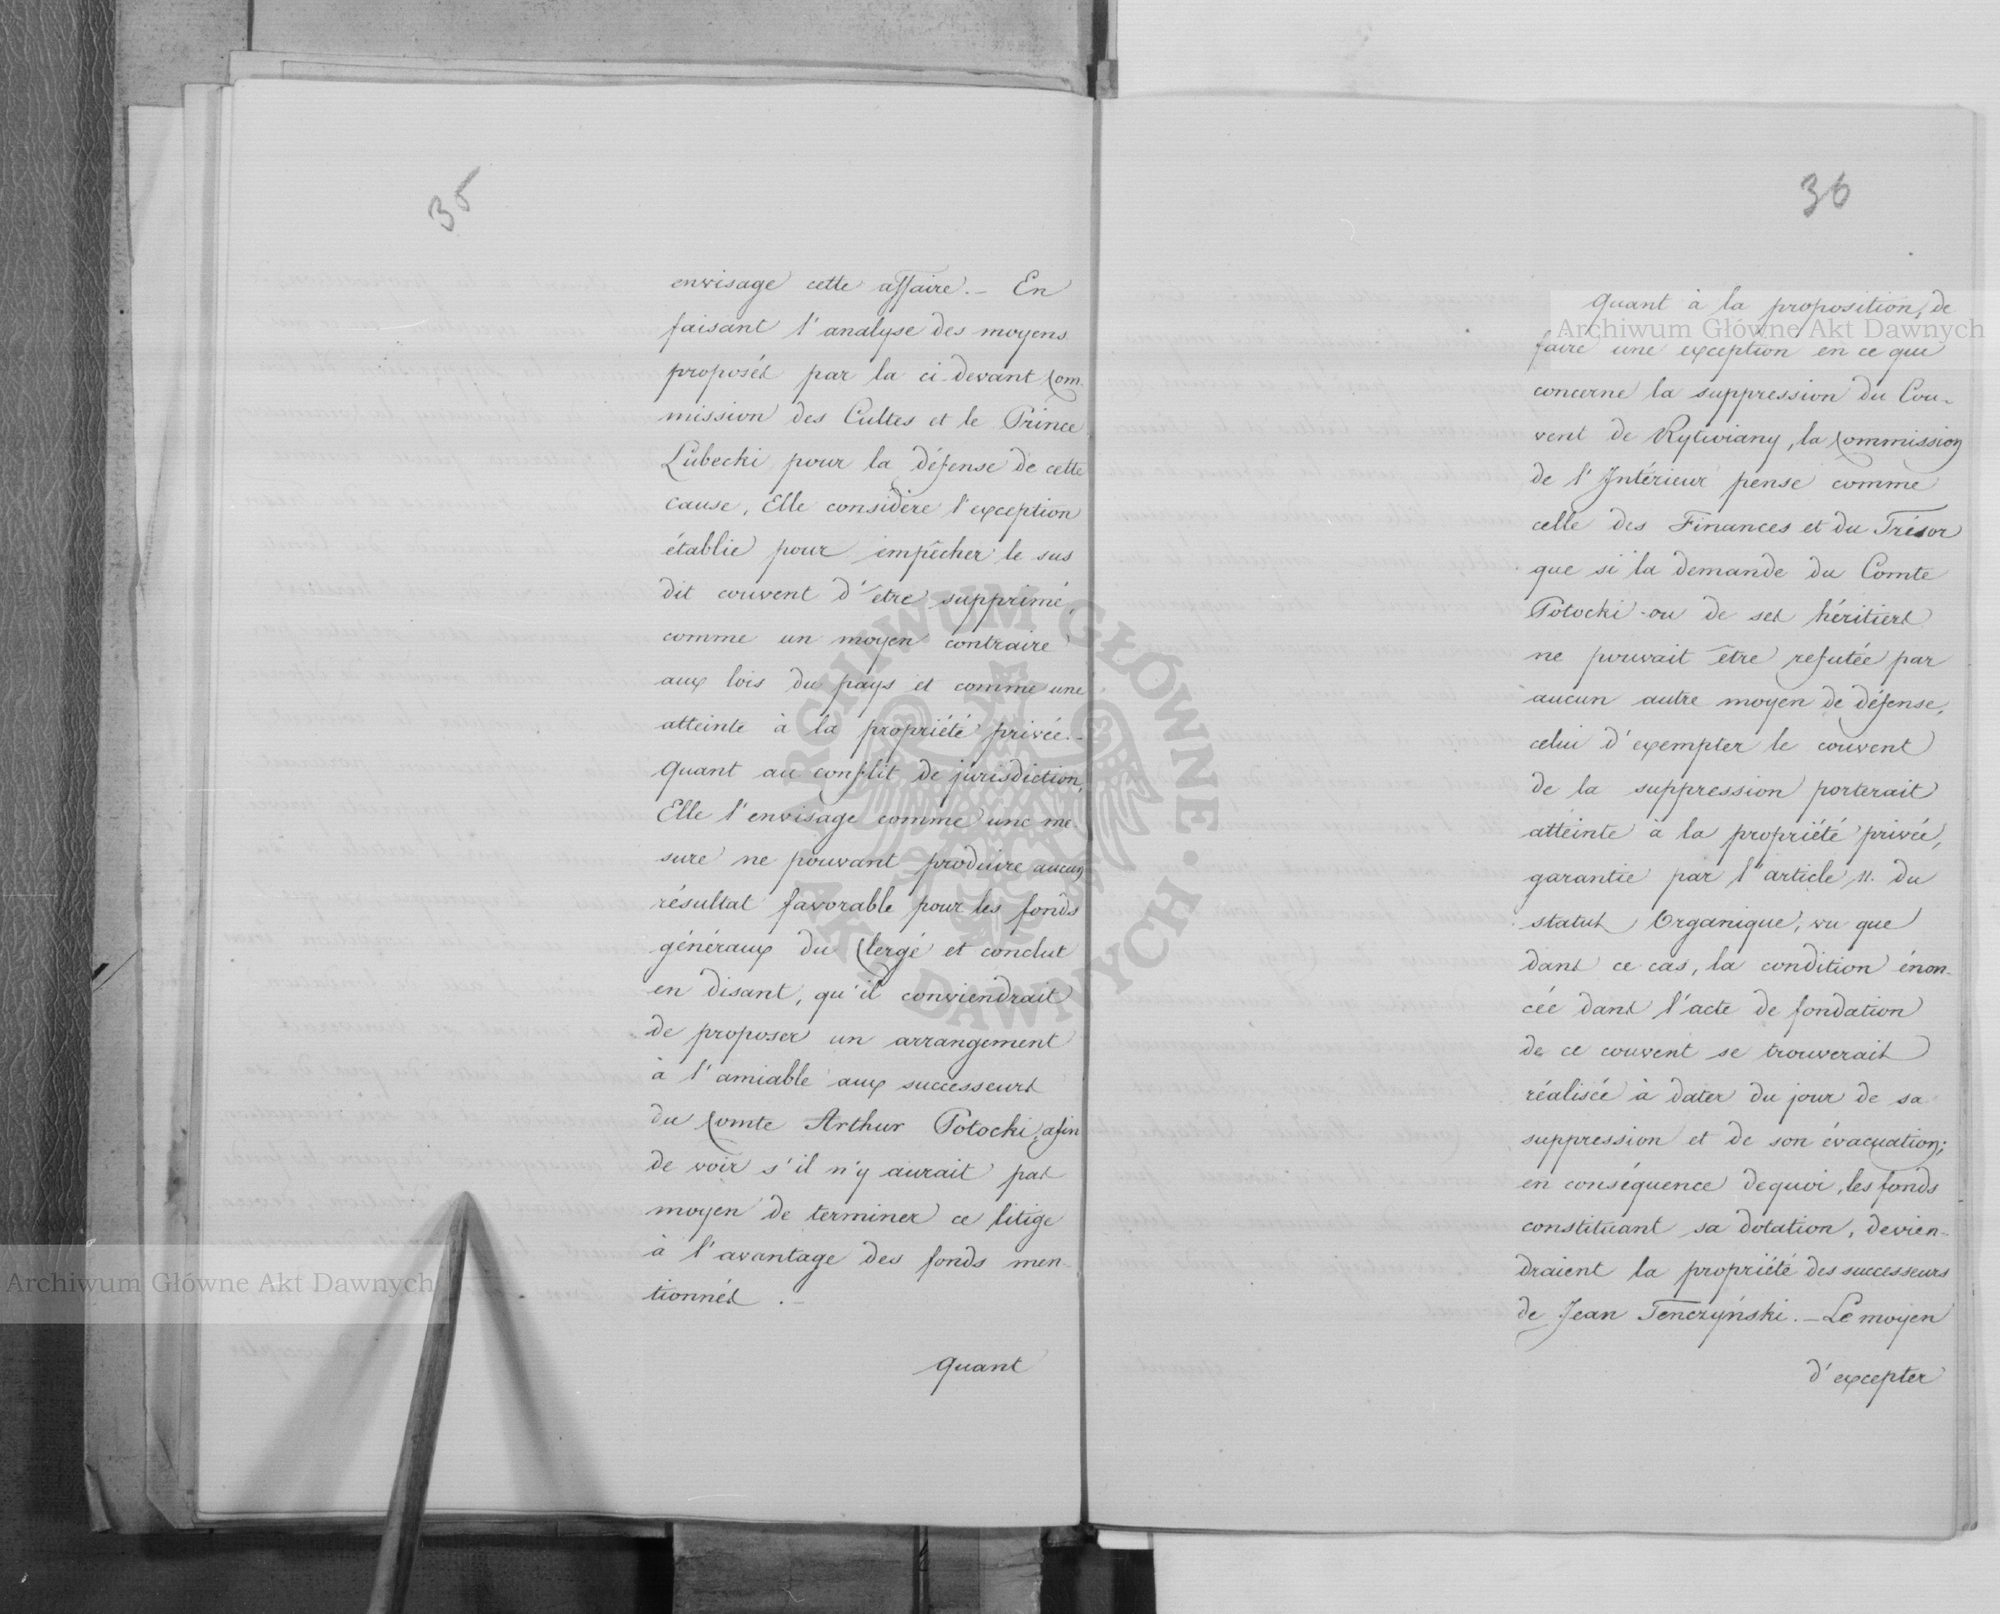 35
envisage cette affaire. — En
faisant l'analyse des moyens
proposés par la ci-devant Com-
mission des Cultes et le Prince
Lubecki pour la défense de cette
cause, Elle considère l'exception
établie pour empêcher le sus
dit couvent d'être supprimé,
comme un moyen contraire
aux lois du pays et comme une
atteinte à la propriété privée. —
Quant au conflit de jurisdiction,
Elle l'envisage comme une me-
sure ne pouvant produire aucun
résultat favorable pour les fonds
généraux du Clergé et conclut
en disant, qu'il conviendrait
de proposer un arrangement
à l'amiable aux successeurs
du Comte Arthur Potocki, afin
de voir s'il n'y aurait pas
moyen de terminer ce litige
à l'avantage des fonds men-
tionnés. —
Quant
36
Quant à la proposition, de
faire une exception en ce qui
concerne la suppression du Cou-
vent de Rytwiany, la Commission
de l'Intérieur pense comme
celle des Finances et du Trésor
que si la demande du Comte
Potocki ou de ses héritiers
ne pouvait être refutée par
aucun autre moyen de défense,
celui d'exempter le couvent
de la suppression porterait
atteinte à la propriété privée,
garantie par l'article 11. du
statut Organique, vu que
dans ce cas, la condition énon-
cée dans l'acte de fondation
de ce couvent se trouverait
réalisée à dater du jour de sa
suppression et de son évacuation;
en conséquence de quoi, les fonds
constituant sa dotation, devien-
draient la propriété des successeurs
de Jean Tenczyński. — Le moyen
d'excepter
Archiwum Główne Akt Dawnych
Archiwum Główne Akt Dawnych
ARCHIWUM GŁÓWNE · AKT DAWNYCH